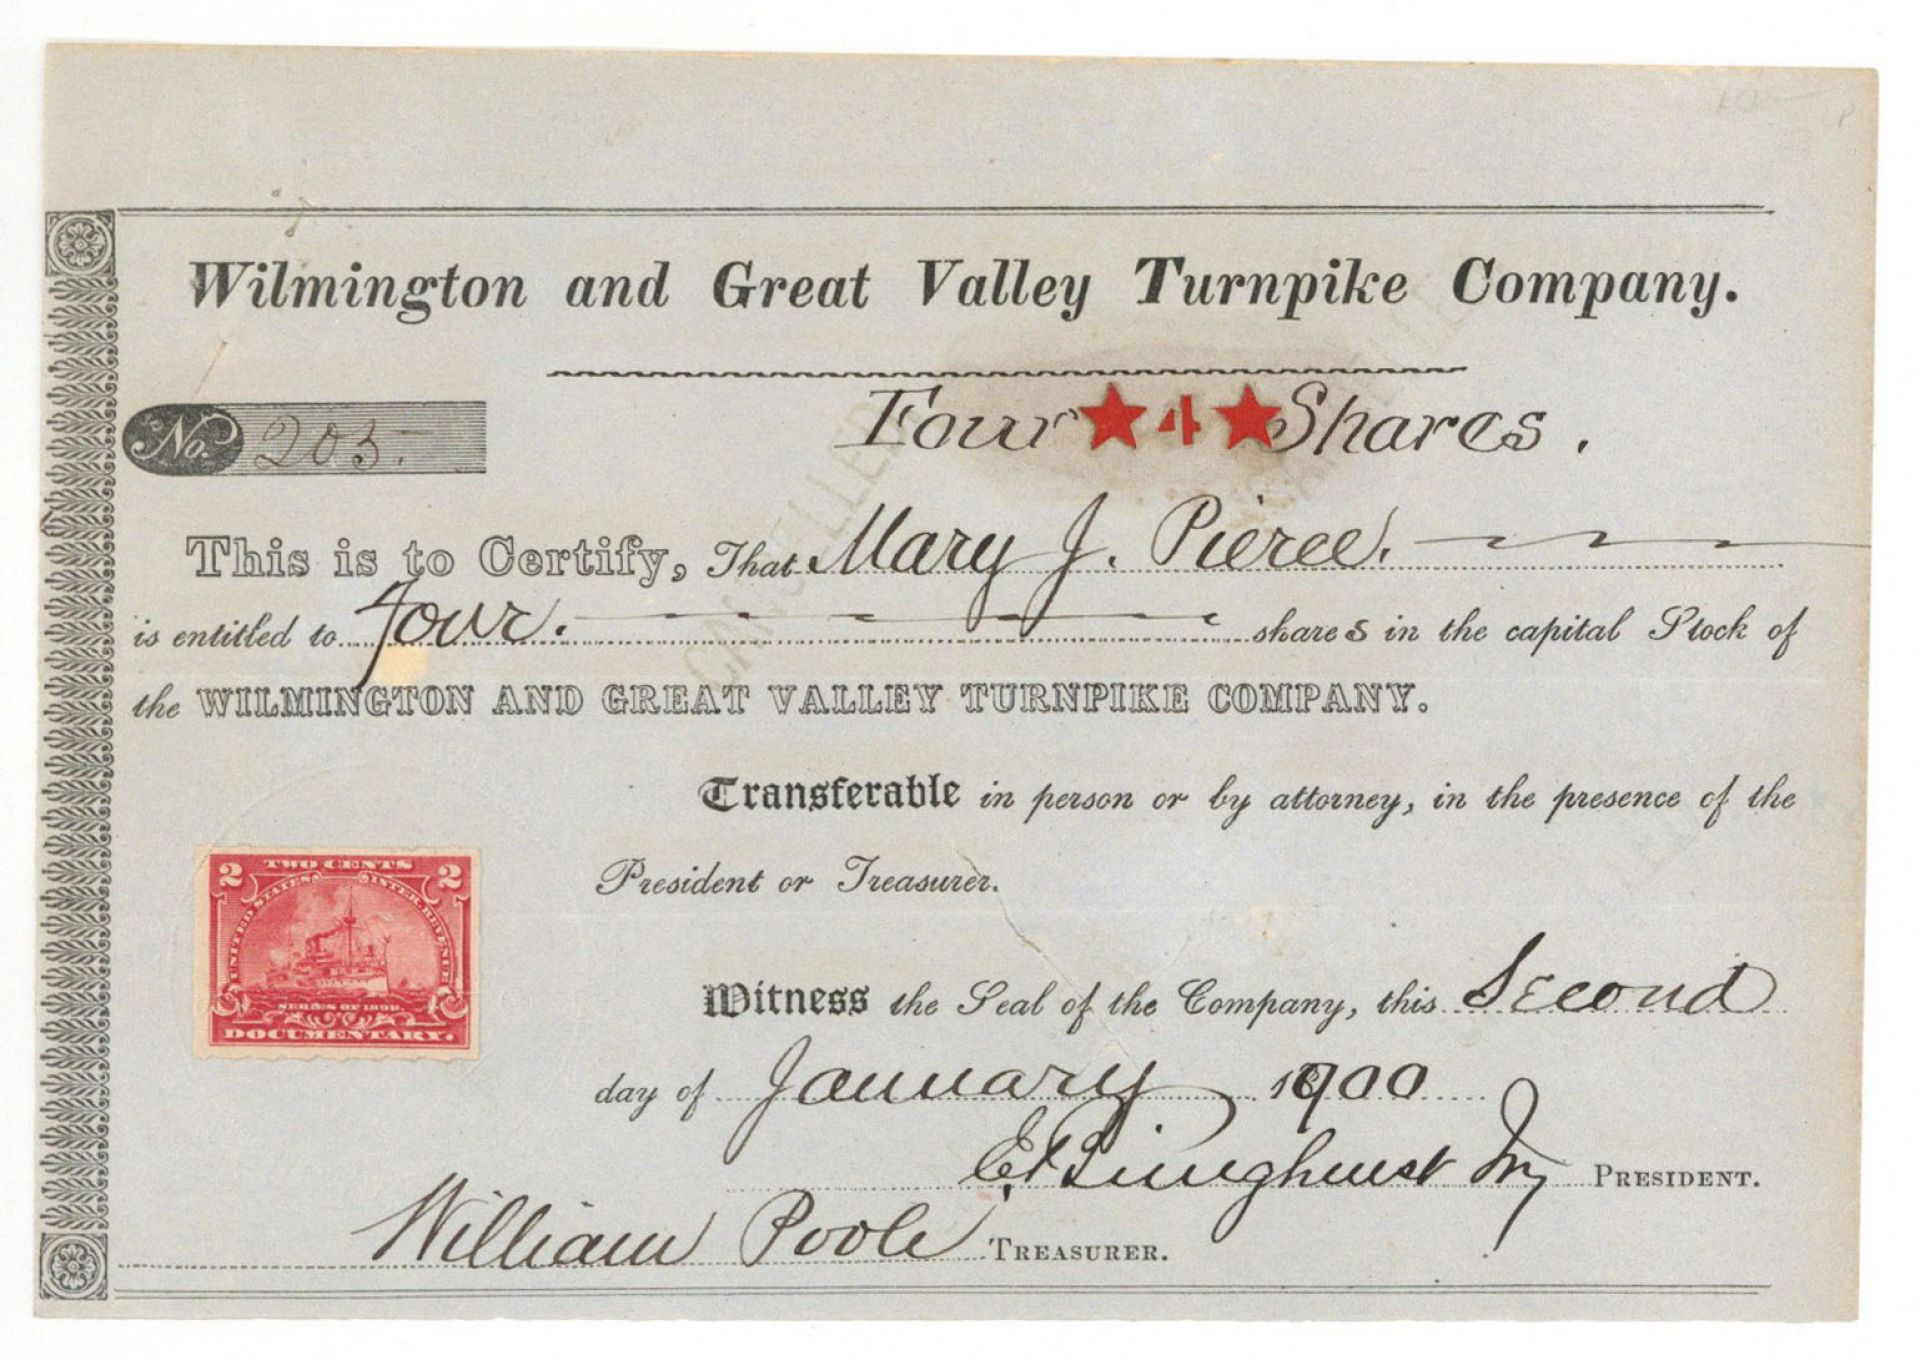 Wilmington and Great Valley Turnpike Company.
No. 205.
Four ★ 4 ★ Shares.
This is to Certify, That Mary J. Pierce.
is entitled to four. shares in the capital Stock of
the WILMINGTON AND GREAT VALLEY TURNPIKE COMPANY.
Transferable in person or by attorney, in the presence of the
President or Treasurer.
2 TWO CENTS 2
UNITED STATES INTER. REVENUE
SERIES OF 1898.
DOCUMENTARY.
Witness the Seal of the Company, this Second
day of January 1900
E. Bringhurst Jr PRESIDENT.
William Poole TREASURER.
CANCELLED